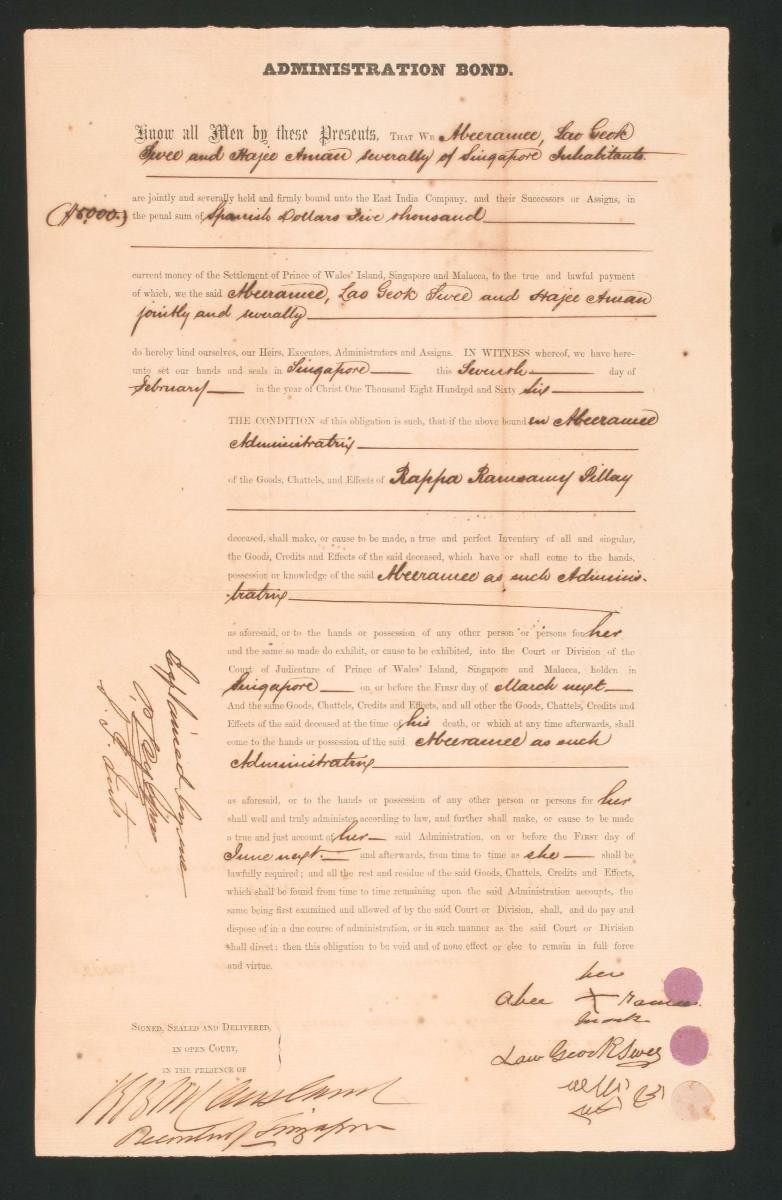 ADMINISTRATION BOND.
Know all Men by these Presents, THAT WE Abeeramee, Lao Geok
Swee and Hajee Aman severally of Singapore Inhabitants
are jointly and severally held and firmly bound unto the East India Company, and their Successors or Assigns, in
($5000.) the penal sum of Spanish Dollars Five thousand
current money of the Settlement of Prince of Wales' Island, Singapore and Malacca, to the true and lawful payment
of which, we the said Abeeramee, Lao Geok Swee and Hajee Aman
jointly and severally
do hereby bind ourselves, our Heirs, Executors, Administrators and Assigns. IN WITNESS whereof, we have here-
unto set our hands and seals in Singapore this Seventh day of
February in the year of Christ One Thousand Eight Hundred and Sixty Six
THE CONDITION of this obligation is such, that if the above bounden Abeeramee
Administratrix
of the Goods, Chattels, and Effects of Rappa Ramsamy Pillay
deceased, shall make, or cause to be made, a true and perfect Inventory of all and singular,
the Goods, Credits and Effects of the said deceased, which have or shall come to the hands,
possession or knowledge of the said Abeeramee as such Adminis-
tratrix
as aforesaid, or to the hands or possession of any other person or persons for her
and the same so made do exhibit, or cause to be exhibited, into the Court or Division of the
Court of Judicature of Prince of Wales' Island, Singapore and Malacca, holden in
Singapore on or before the FIRST day of March next
And the same Goods, Chattels, Credits and Effects, and all other the Goods, Chattels, Credits and
Effects of the said deceased at the time of his death, or which at any time afterwards, shall
come to the hands or possession of the said Abeeramee as such
Administratrix
as aforesaid, or to the hands or possession of any other person or persons for her
shall well and truly administer according to law, and further shall make, or cause to be made
a true and just account of her said Administration, on or before the FIRST day of
June next and afterwards, from time to time as she shall be
lawfully required; and all the rest and residue of the said Goods, Chattels, Credits and Effects,
which shall be found from time to time remaining upon the said Administration accounts, the
same being first examined and allowed of by the said Court or Division, shall, and do pay and
dispose of in a due course of administration, or in such manner as the said Court or Division
shall direct: then this obligation to be void and of none effect or else to remain in full force
and virtue.
Explained by me
her
Abee X ramee
mark
Law Geock Swee
SIGNED, SEALED AND DELIVERED,
IN OPEN COURT,
IN THE PRESENCE OF
Recorder of Singapore